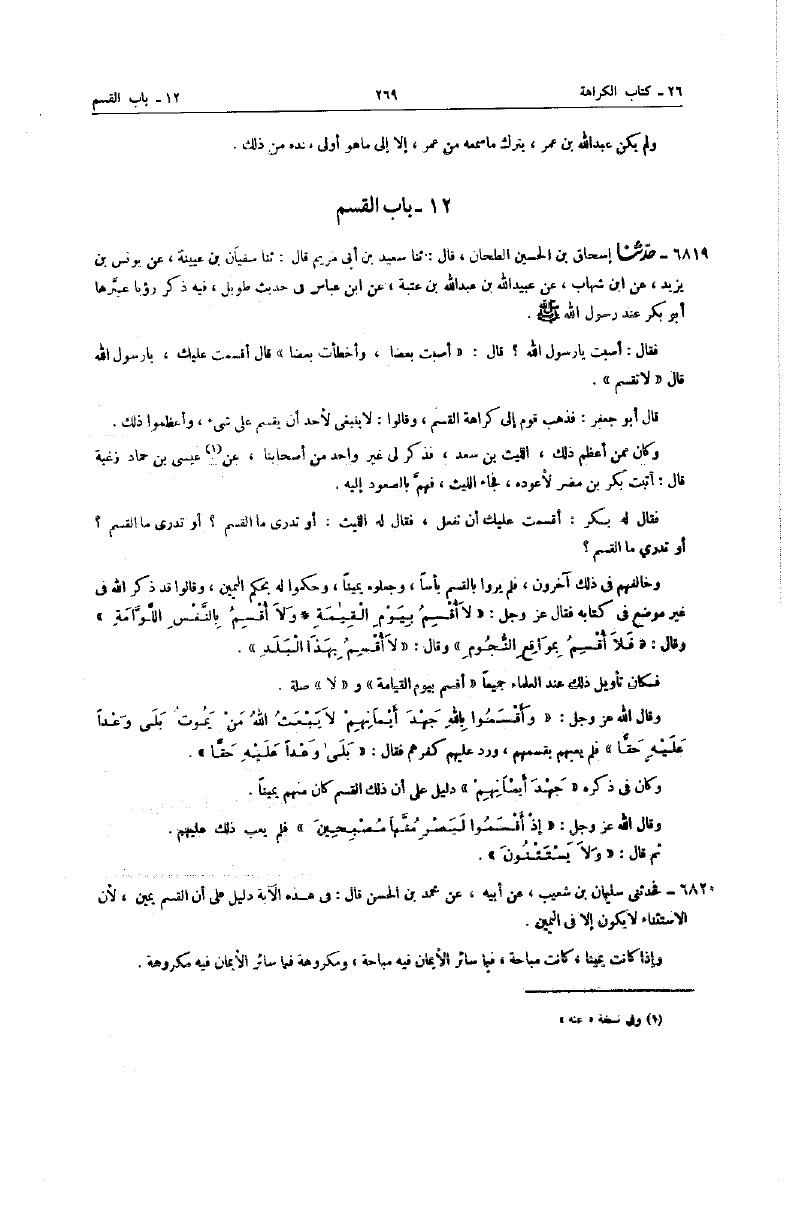 ٢٦ ـ كتاب الكراهة ٢٦٩ ١٢ ـ باب القسم
ولم يكن عبدالله بن عمر ، يترك ماسمعه من عمر ، إلا إلى ماهو أولى نده من ذلك .
١٢ ـ باب القسم
٦٨١٩ ـ حدّثنا إسحاق بن الحسين الطحان ، قال : ثنا سعيد بن أبى مريم قال : ثنا سفيان بن عيينة ، عن يونس بن
يزيد ، عن ابن شهاب ، عن عبيدالله بن عبدالله بن عتبة ، عن ابن عباس فى حديث طويل ، فيه ذكر رؤيا عبَّرها
أبو بكر عند رسول الله ﷺ .
فقال : أصبت يارسول الله ؟ قال : « أصبت بعضا ، وأخطأت بعضا » قال أقسمت عليك ، يارسول الله
قال « لاتقسم » .
قال أبو جعفر : فذهب قوم إلى كراهة القسم ، وقالوا : لاينبغى لأحد أن يقسم على شىء ، وأعظموا ذلك .
وكان ممن أعظم ذلك ، الليث بن سعد ، فذكر لى غير واحد من أصحابنا ، عن(١) عيسى بن حماد زغبة
قال : أتيت بكر بن مضر لأعوده ، فجاء الليث ، فهمَّ بالصعود إليه .
فقال له بكر : أقسمت عليك أن تفعل ، فقال له الليث : أو تدرى ما القسم ؟ أو تدرى ما القسم ؟
أو تدري ما القسم ؟
وخالفهم فى ذلك آخرون ، فلم يروا بالقسم بأساً ، وجعلوه يميناً ، وحكموا له بحكم اليمين ، وقالوا قد ذكر الله فى
غير موضع فى كتابه فقال عز وجل : « لاَ أُقْسِمُ بِيَوْمِ الْقِيَٰمَةِ * وَلاَ أُقْسِمُ بِالنَّفْسِ اللَّوَّامَةِ »
وقال : « فَلاَ أُقْسِمُ بِمَوَاقِعِ النُّجُومِ » وقال : « لاَ أُقْسِمُ بِهَذَا الْبَلَدِ » .
فكان تأويل ذلك عند العلماء جميعاً « أقسم بيوم القيامة » و « لا » صلة .
وقال الله عز وجل : « وَأَقْسَمُوا بِاللهِ جَهْدَ أَيْمَانِهِمْ لاَيَبْعَثُ اللهُ مَنْ يَمُوتُ بَلَى وَعْداً
عَلَيْهِ حَقًّا » فلم يعبهم بقسمهم ، ورد عليهم كفرهم فقال : « بَلَى وَعْداً عَلَيْهِ حَقًّا » .
وكان فى ذكره « جَهْدَ أَيْمَٰنِهِمْ » دليل على أن ذلك القسم كان منهم يميناً .
وقال الله عز وجل : « إِذْ أَقْسَمُوا لَيَصْرِمُنَّهَا مُصْبِحِينَ » فلم يعب ذلك عليهم .
ثم قال : « وَلاَ يَسْتَثْنُونَ » .
٦٨٢٠ ـ فحدثنى سليمان بن شعيب ، عن أبيه ، عن محمد بن الحسن قال : فى هذه الآية دليل على أن القسم يمين ، لأن
الاستثناء لايكون إلا فى اليمين .
وإذا كانت يمينا ، كانت مباحة ، فيما سائر الأيمان فيه مباحة ، ومكروهة فيما سائر الأيمان فيه مكروهة .
(١) وفى نسخة « عنه »